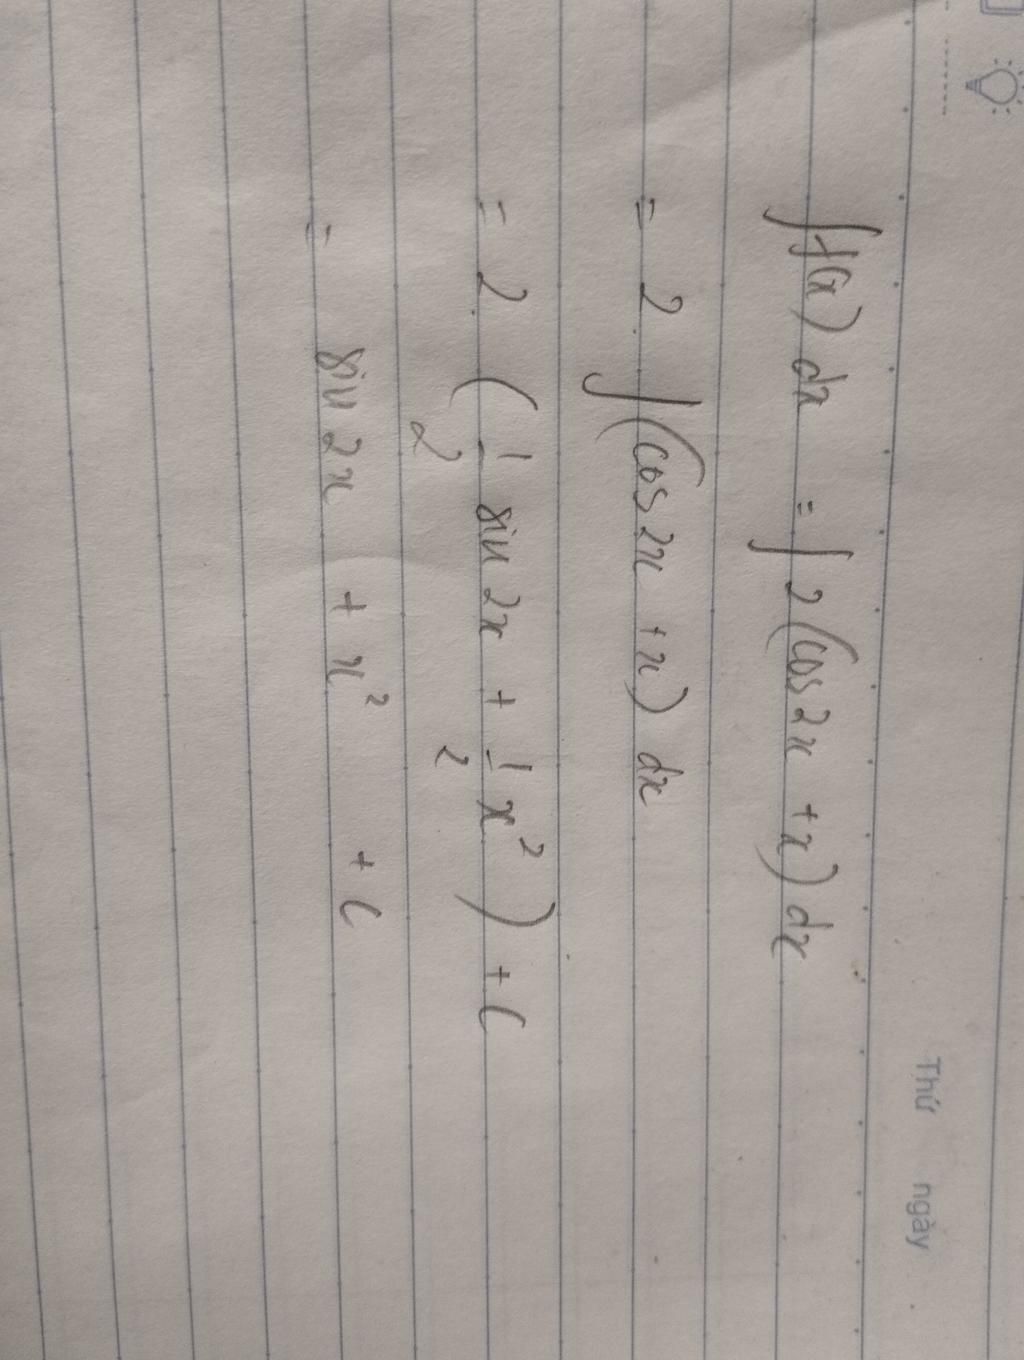 Thứ ngày
∫f(x) dx = ∫2(cos 2x + x) dx
= 2 ∫(cos 2x + x) dx
= 2 (1/2 sin 2x + 1/2 x²) + C
= sin 2x + x² + C